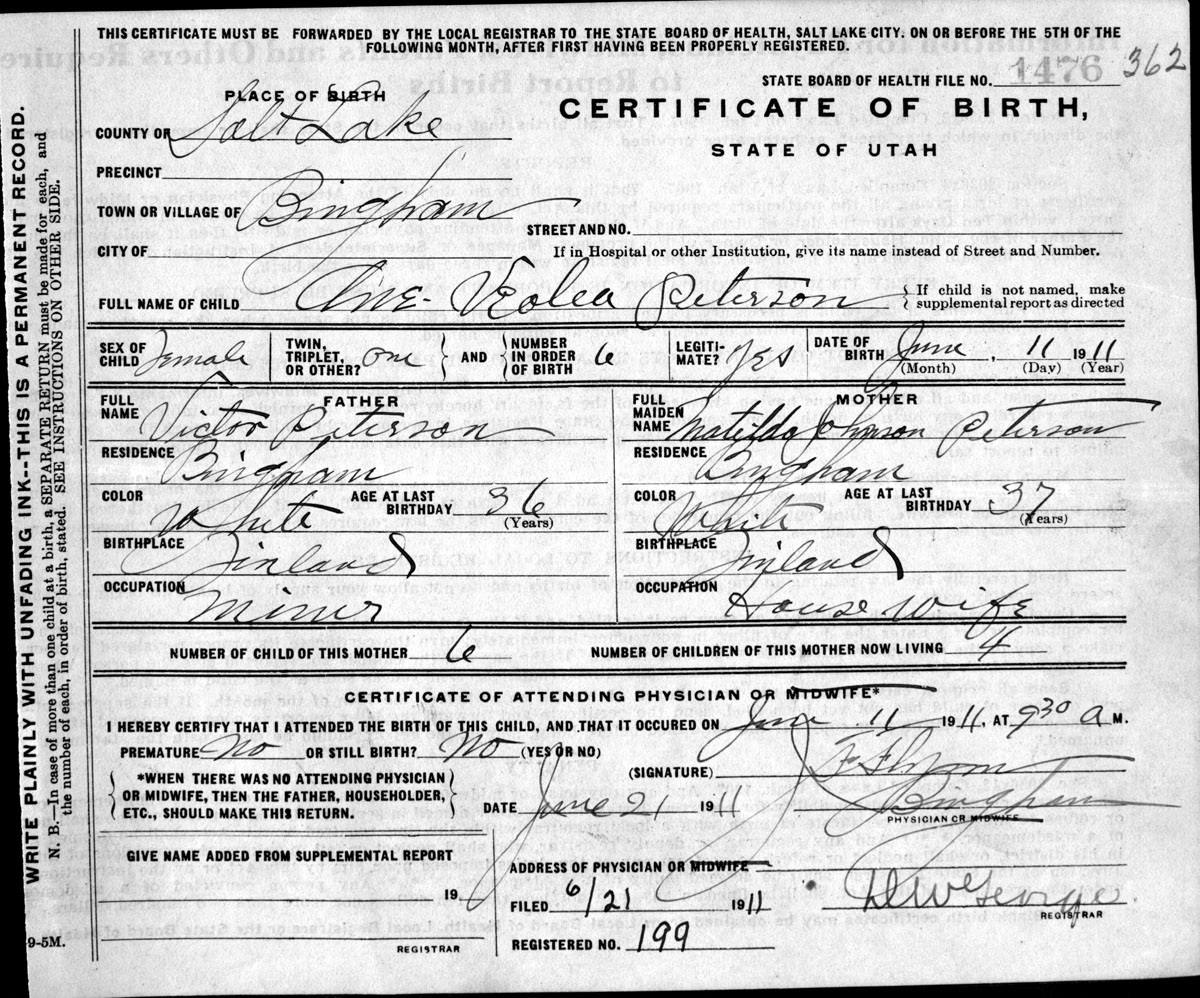 THIS CERTIFICATE MUST BE FORWARDED BY THE LOCAL REGISTRAR TO THE STATE BOARD OF HEALTH, SALT LAKE CITY. ON OR BEFORE THE 5TH OF THE
FOLLOWING MONTH, AFTER FIRST HAVING BEEN PROPERLY REGISTERED.
STATE BOARD OF HEALTH FILE NO. 1476 362
PLACE OF BIRTH
CERTIFICATE OF BIRTH,
STATE OF UTAH
COUNTY OF Salt Lake
PRECINCT
TOWN OR VILLAGE OF Bingham
STREET AND NO.
CITY OF
If in Hospital or other Institution, give its name instead of Street and Number.
FULL NAME OF CHILD Peterson { If child is not named, make
supplemental report as directed
SEX OF CHILD Female
TWIN, TRIPLET, OR OTHER? one } AND { NUMBER IN ORDER OF BIRTH 6
LEGITI-MATE? Yes
DATE OF BIRTH June, 11 1911
(Month) (Day) (Year)
FATHER
FULL NAME Victor Peterson
RESIDENCE Bingham
COLOR White AGE AT LAST BIRTHDAY 36 (Years)
BIRTHPLACE Finland
OCCUPATION Miner
MOTHER
FULL MAIDEN NAME Matilda Johnson Peterson
RESIDENCE Bingham
COLOR White AGE AT LAST BIRTHDAY 37 (Years)
BIRTHPLACE Finland
OCCUPATION House wife
NUMBER OF CHILD OF THIS MOTHER 6 NUMBER OF CHILDREN OF THIS MOTHER NOW LIVING 4
CERTIFICATE OF ATTENDING PHYSICIAN OR MIDWIFE*
I HEREBY CERTIFY THAT I ATTENDED THE BIRTH OF THIS CHILD, AND THAT IT OCCURED ON June 11 1911, AT 9 30 a M.
PREMATURE No OR STILL BIRTH? No (YES OR NO)
{ *WHEN THERE WAS NO ATTENDING PHYSICIAN
OR MIDWIFE, THEN THE FATHER, HOUSEHOLDER,
ETC., SHOULD MAKE THIS RETURN. }
(SIGNATURE)
DATE June 21 1911
Bingham
PHYSICIAN OR MIDWIFE
GIVE NAME ADDED FROM SUPPLEMENTAL REPORT
19
REGISTRAR
ADDRESS OF PHYSICIAN OR MIDWIFE
FILED 6/21 1911
REGISTRAR
REGISTERED NO. 199
WRITE PLAINLY WITH UNFADING INK--THIS IS A PERMANENT RECORD.
N. B.—In case of more than one child at a birth, a SEPARATE RETURN must be made for each, and
the number of each, in order of birth, stated. SEE INSTRUCTIONS ON OTHER SIDE.
9-5M.